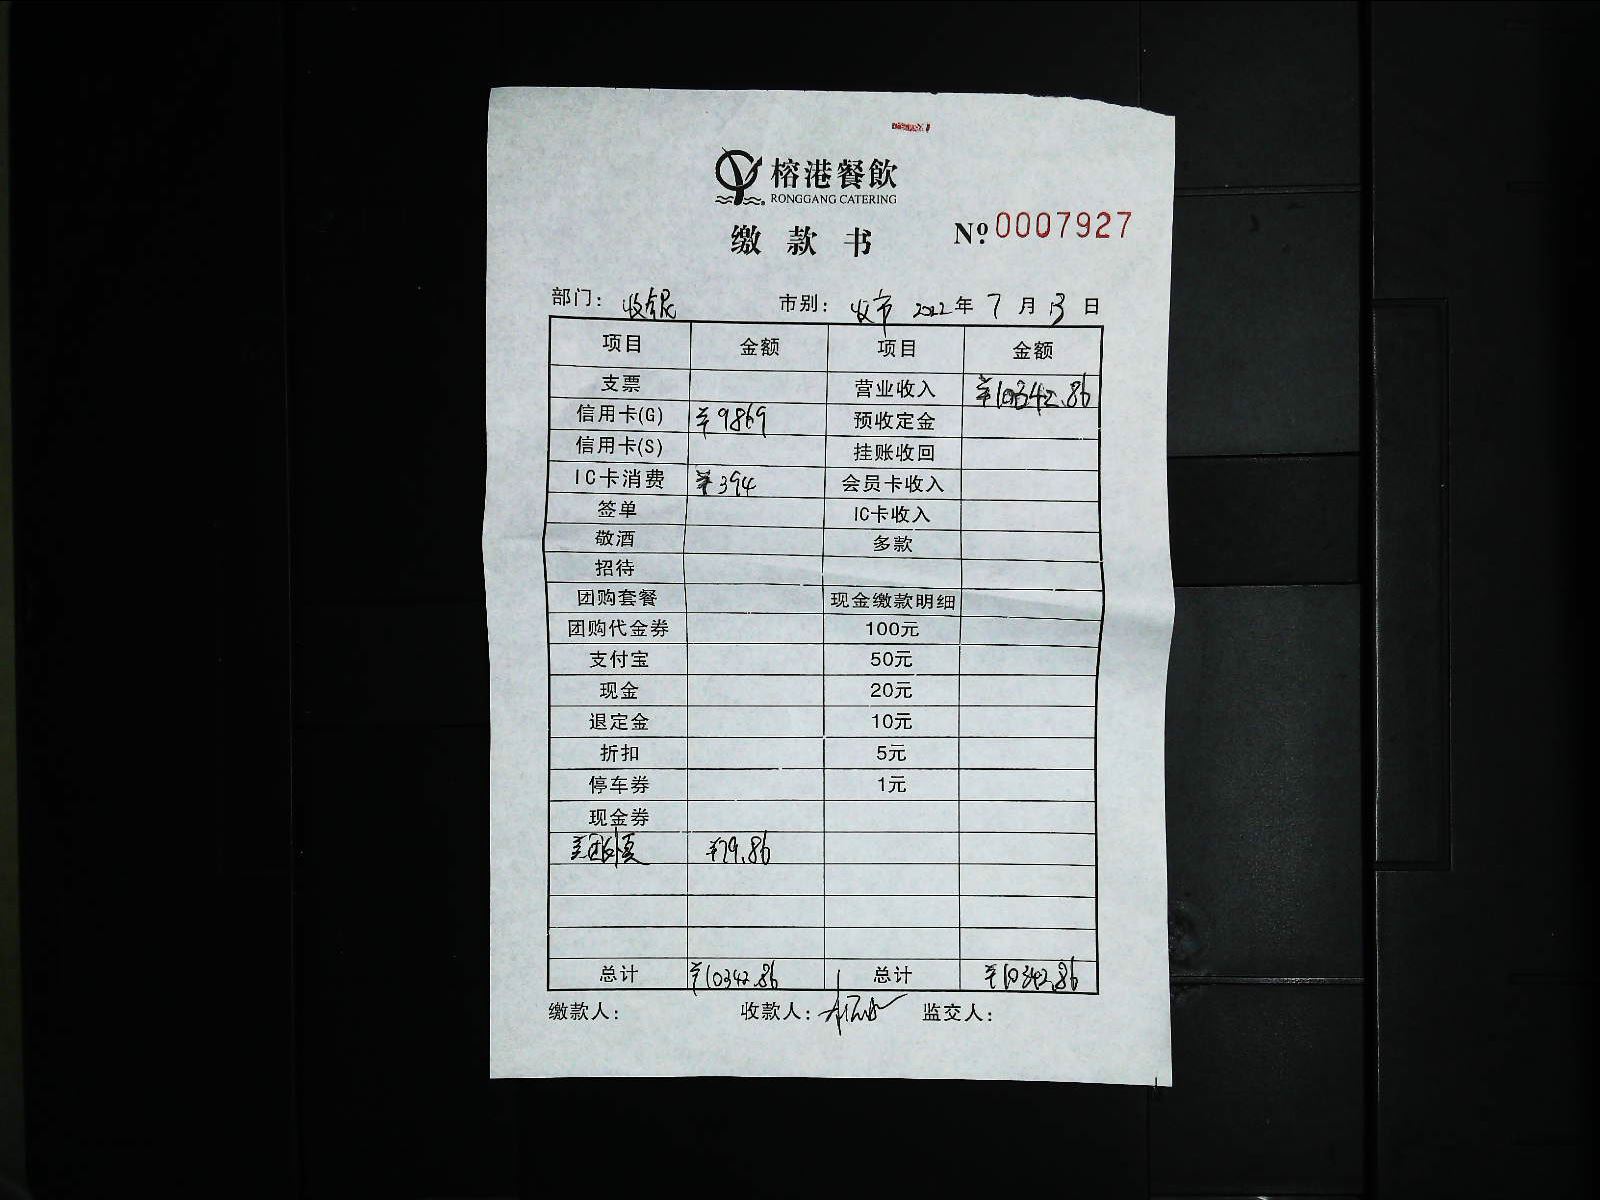 榕港餐飲
RONGGANG CATERING
缴款书
№ 0007927
部门：收银 市别：收市 2022年 7月 13日
项目 金额 项目 金额
支票 营业收入 ￥10342.86
信用卡(G) ￥9869 预收定金
信用卡(S) 挂账收回
IC卡消费 ￥394 会员卡收入
签单 IC卡收入
敬酒 多款
招待
团购套餐 现金缴款明细
团购代金券 100元
支付宝 50元
现金 20元
退定金 10元
折扣 5元
停车券 1元
现金券
美团外卖 ￥79.86
总计 ￥10342.86 总计 ￥10342.86
缴款人： 收款人： 监交人：